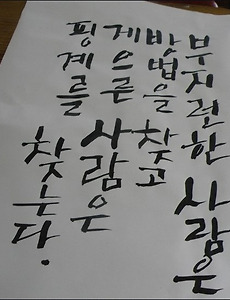 부지런한 사람은
방법을 찾고
게으른 사람은
핑계를 찾는다.